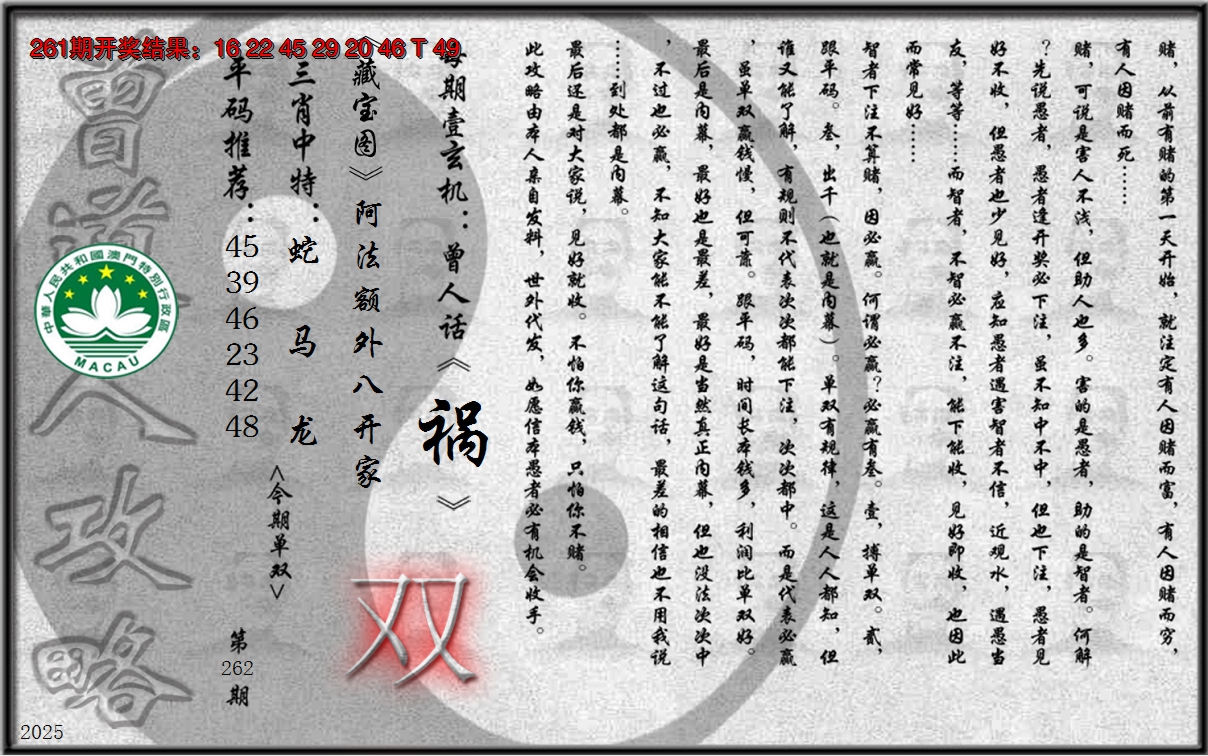 261期开奖结果：16 22 45 29 20 46 T 49
赌，从前有赌的第一天开始，就注定有人因赌而富，有人因赌而穷，
有人因赌而死……
赌，可说是害人不浅，但助人也多。害的是愚者，助的是智者。何解
？先说愚者，愚者逢开奖必下注，虽不知中不中，但也下注，愚者见
好不收，但愚者也少见好，应知愚者遇害智者不信，近观水，遇愚当
友，等等……而智者，不智必赢不注，能下能收，见好即收，也因此
而常见好……
智者下注不算赌，因必赢。何谓必赢？必赢有叁。壹，搏单双。贰，
跟平码。叁，出千（也就是内幕）。单双有规律，这是人人都知，但
谁又能了解，有规则不代表次次都能下注，次次都中。而是代表必赢
，虽单双赢钱慢，但可靠。跟平码，时间长本钱多，利润比单双好。
最后是内幕，最好也是最差，最好是当然真正内幕，但也没法次次中
，不过也必赢，不知大家能不能了解这句话，最差的相信也不用我说
……到处都是内幕。
最后还是对大家说，见好就收。不怕你赢钱，只怕你不赌。
此攻略由本人亲自发料，世外代发，如愿信本愚者必有机会收手。
每期壹玄机：曾人话《祸》
《藏宝图》阿法额外八开家
双
三肖中特：蛇 马 龙
<今期单双>
平码推荐：45 39 46 23 42 48
第262期
曾道人攻略
中華人民共和國澳門特別行政區
MACAU
2025